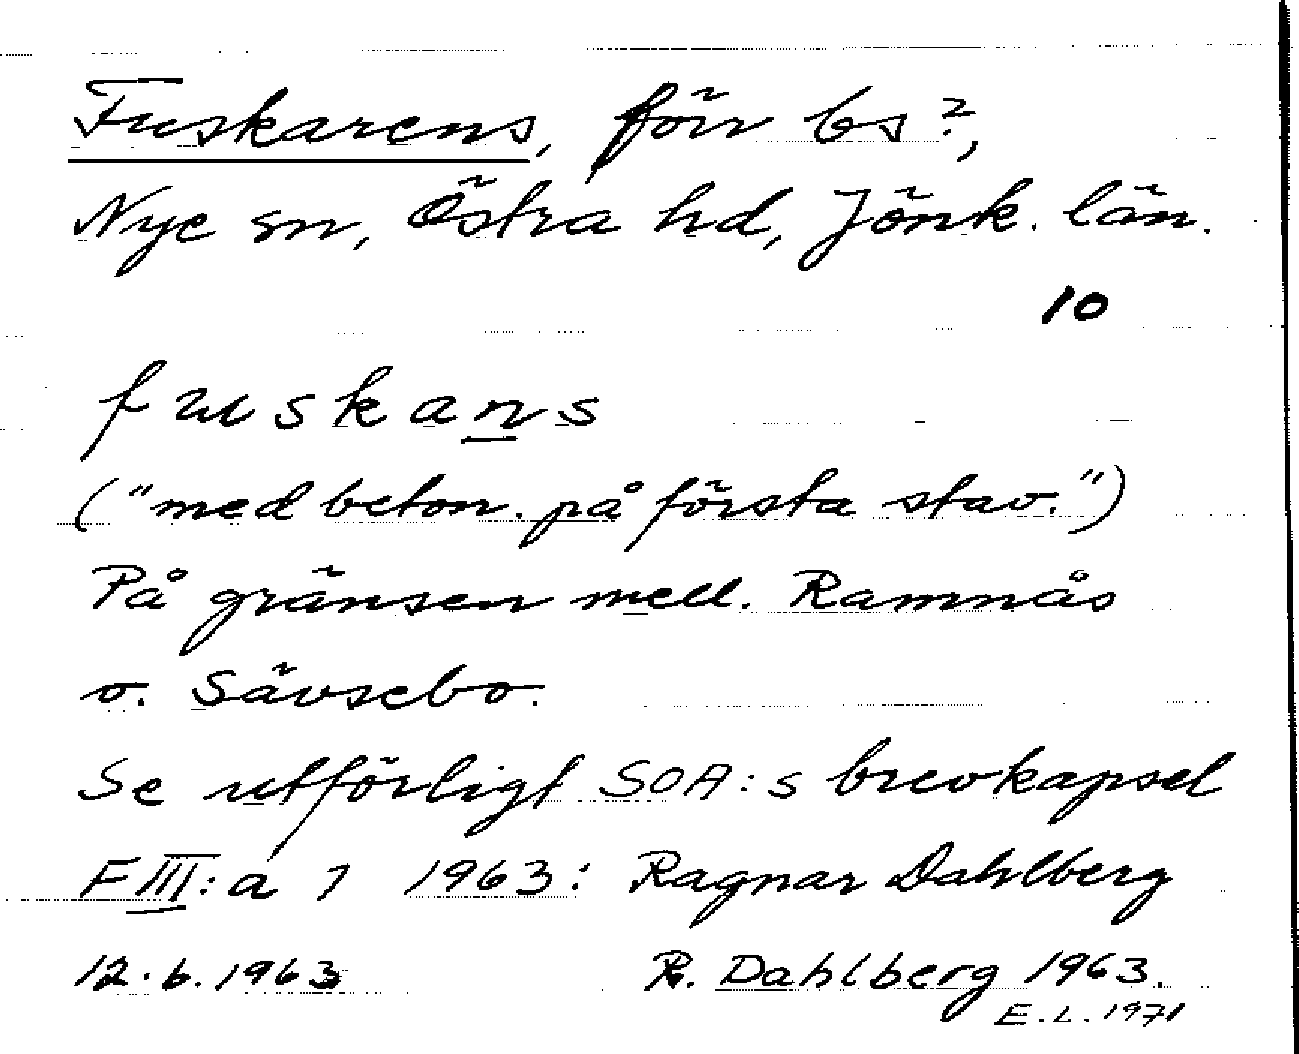 Fuskarens, förr bs?,
Nye sn, Östra hd, Jönk. län.
10
fuskans
("med beton. på första stav.")
På gränsen mell. Ramnås
o. Sävsebo.
Se utförligt SOA:s brevkapsel
F III:a 7 1963: Ragnar Dahlberg
12.6.1963 R. Dahlberg 1963.
E.L. 1971